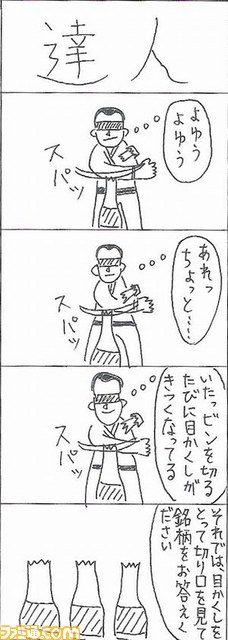 達人
よゆう
よゆう
スパッ
あれっ
ちょっと……
スパッ
いたっビンを切る
たびに目かくしが
きつくなってる
スパッ
それでは、目かくしを
とって切り口を見て
銘柄をお答えく
ださい
ファミ通.com